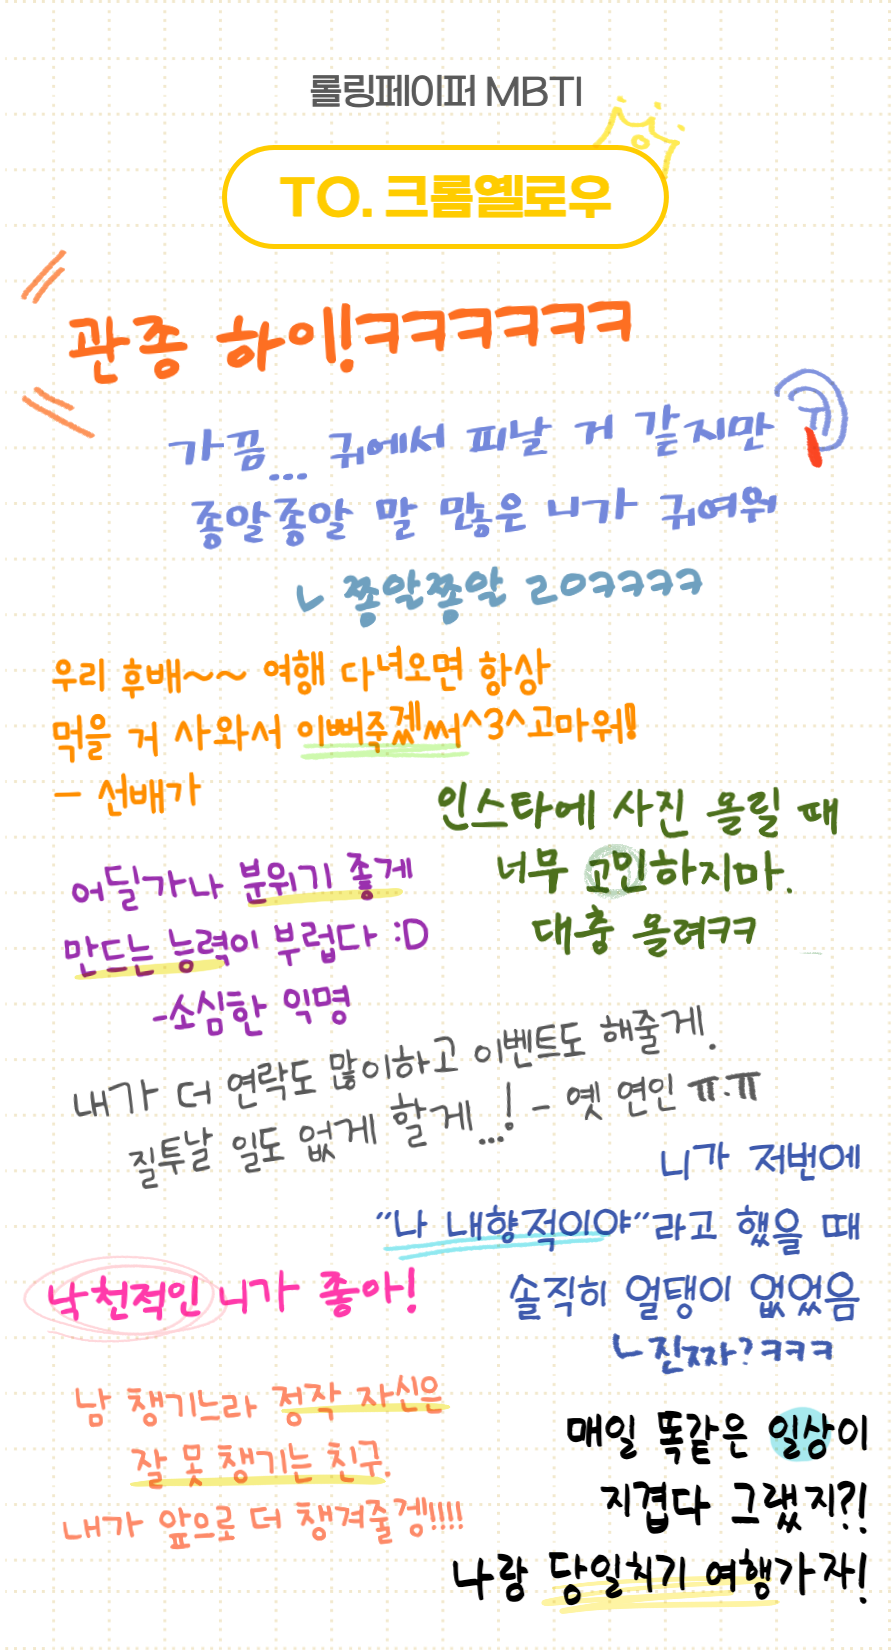 롤링페이퍼 MBTI
TO. 크롬옐로우
관종 하이!ㅋㅋㅋㅋㅋㅋ
가끔... 귀에서 피날 거 같지만
귀
종알종알 말 많은 니가 귀여워
ㄴ 쫑알쫑알 ㄹㅇㅋㅋㅋㅋ
우리 후배~~ 여행 다녀오면 항상
먹을 거 사와서 이뻐죽겠써^3^고마워!!
- 선배가
인스타에 사진 올릴 때
너무 고민하지마.
대충 올려ㅋㅋ
어딜가나 분위기 좋게
만드는 능력이 부럽다 :D
-소심한 익명
내가 더 연락도 많이하고 이벤트도 해줄게.
질투날 일도 없게 할게...! - 옛 연인 ㅠ.ㅠ
니가 저번에
"나 내향적이야"라고 했을 때
솔직히 얼탱이 없었음
ㄴ진짜?ㅋㅋㅋ
낙천적인 니가 좋아!
남 챙기느라 정작 자신은
잘 못 챙기는 친구.
내가 앞으로 더 챙겨줄겡!!!!
매일 똑같은 일상이
지겹다 그랬지?!
나랑 당일치기 여행가자!